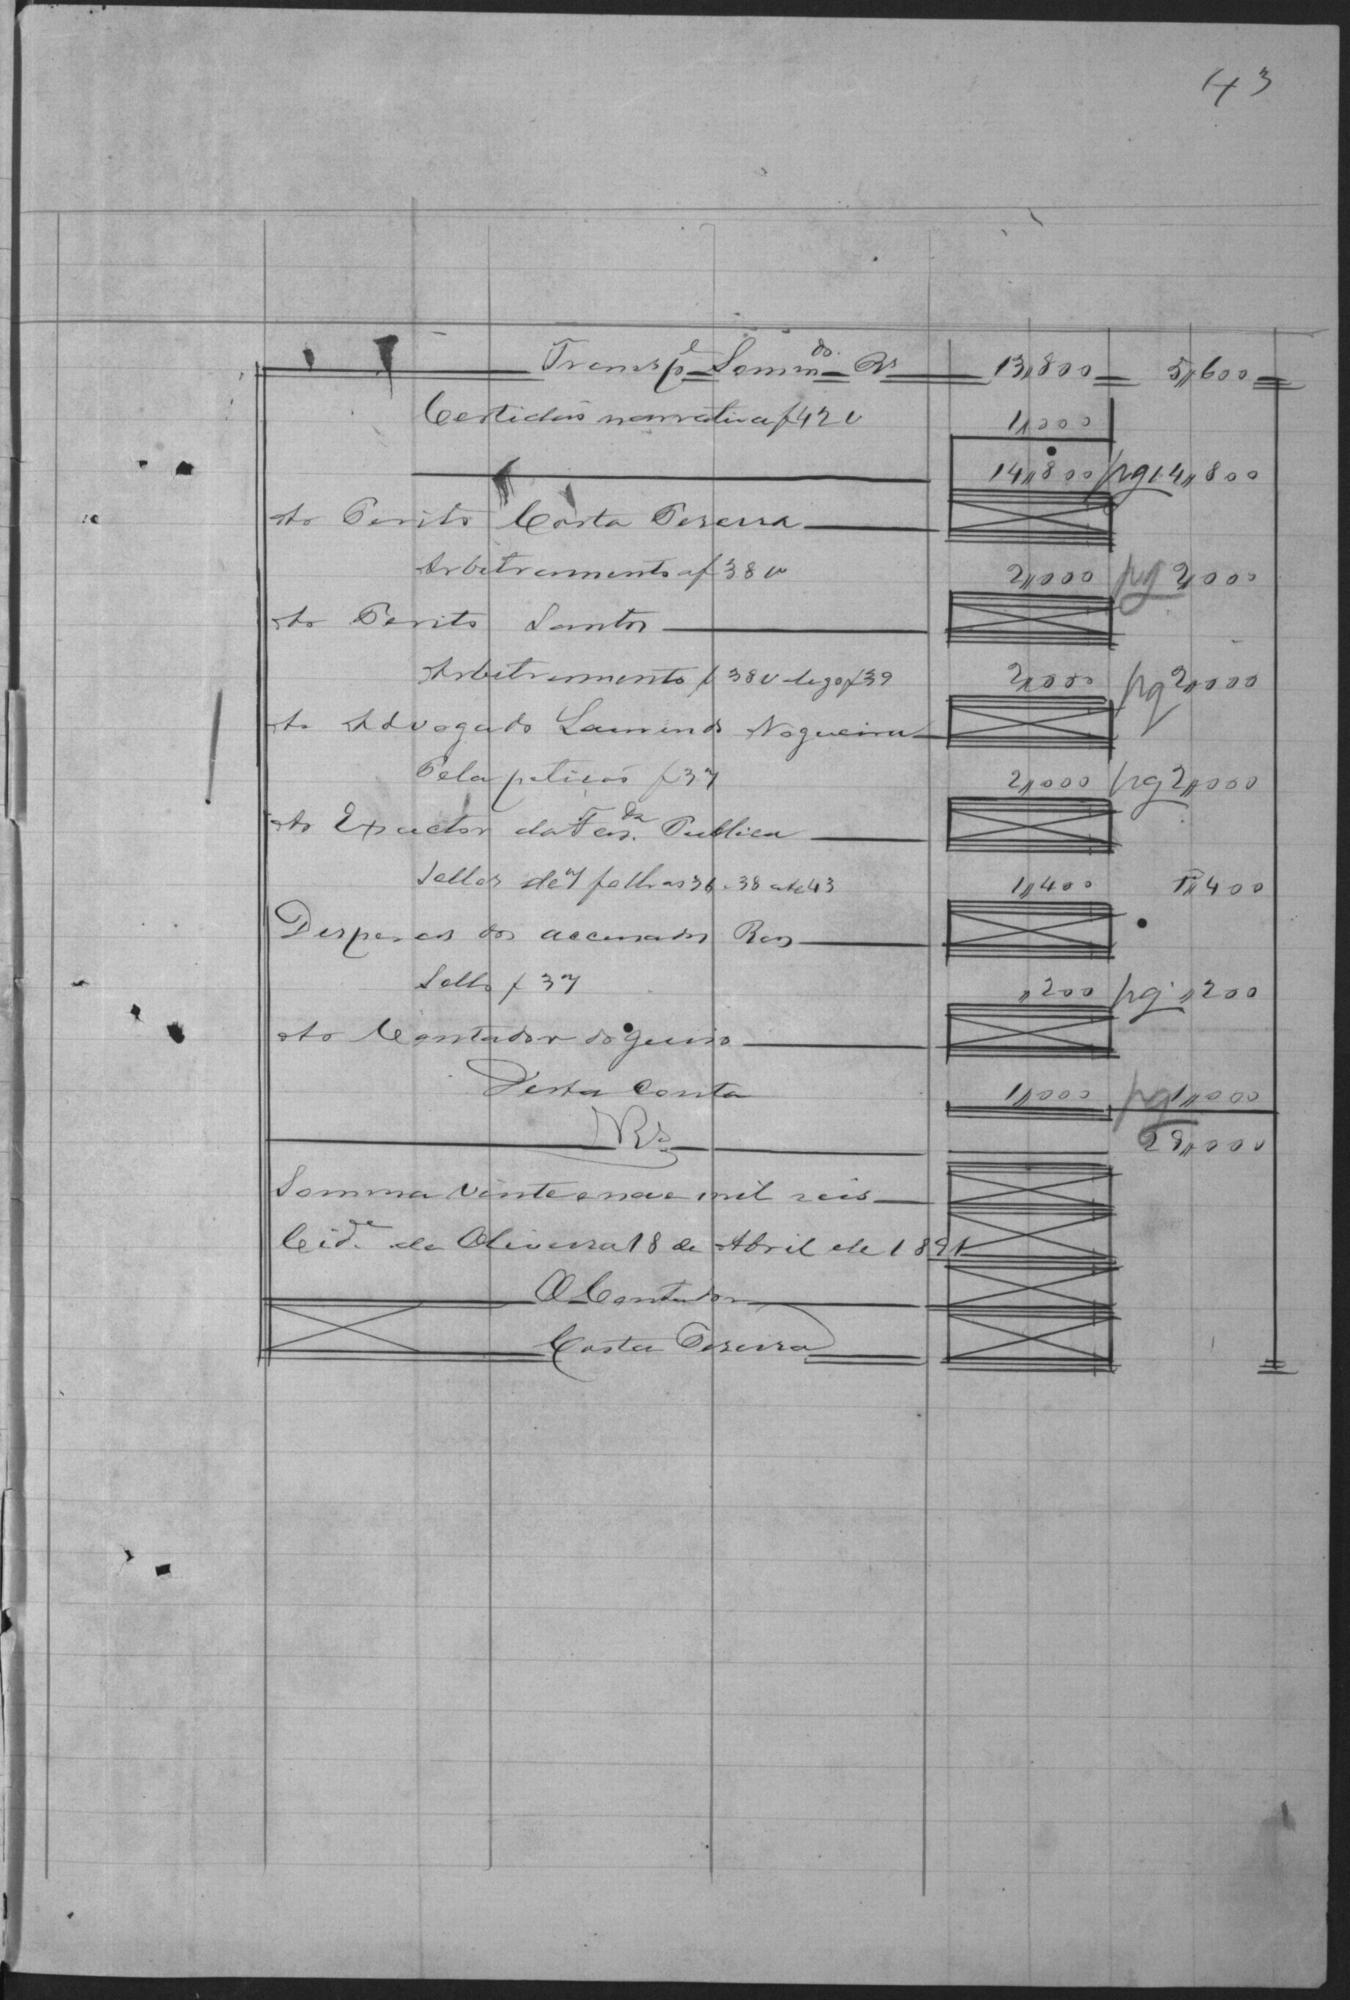 43
Transpe Sommdo Rs 13,,800 5,,600
Certidão narrativa f 42 v 1,,000
14,,800 pg 14,,800
Ao Perito Costa Pereira
Arbitramento af 38 v 2,,000 pg 2,,000
Ao Perito Santos
Arbitramento f 38 v f 39 2,,000 pg 2,,000
Ao Advogado Laurindo Nogueira
Pela petição f 37 2,,000 pg 2,,000
Ao Exactor da Fasda Publica
Sellos de 7 folhas 36 . 38 até 43 1,,400 1,,400
Despesas dos accusados Reos
Sello f 37 ,,200 pg ,,200
Ao Contador do Juiso
Desta conta 1,,000 pg 1,,000
Rs 29,,000
Somma vinte e nove mil reis
Cide de Oliveira 18 de Abril de 1891
O Contador
Costa Pereira